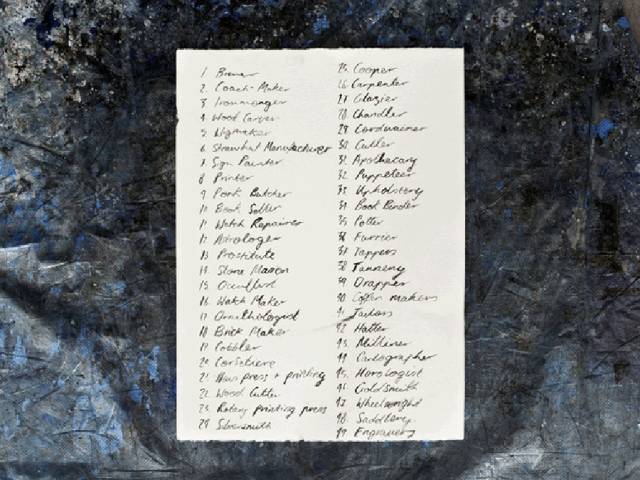 1 Brewer
2. Coach-Maker
3 Ironmonger
4 Wood Carver
5 Wigmaker
6 Strawhat Manufacturer
7 Sign Painter
8 Printer
9 Pork Butcher
10 Book Seller
11 Watch Repairer
12 Astrologer
13 Prostitute
14 Stone Mason
15 Occultist
16 Watch Maker
17 Ornithologist
18 Brick Maker
19 Cobbler
20 Corsetiere
21 press + printing
22 Wood Cutter
23 Rotary printing press
24 Silversmith
25 Cooper
26 Carpenter
27 Glazier
28 Chandler
29 Cordwainer
30 Cutler
31 Apothecary
32 Puppeteer
33 Upholstery
34 Book Bender
35 Potter
36 Furrier
37 Tappers
38 Tannery
39 Drapper
40 Coffin makers
41 Tailors
42 Hatter
43 Milliner
44 Cartographer
45 Horologist
46 Goldsmith
47 Wheelwright
48 Saddlery
49 Engravers